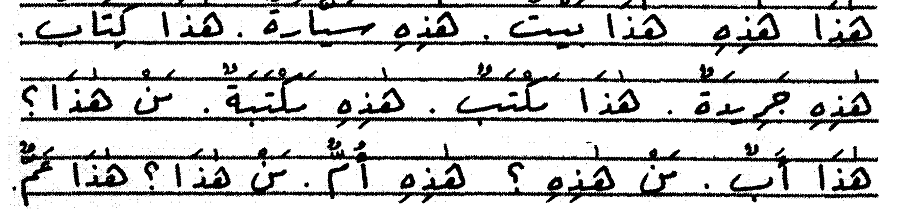 هٰذَا هٰذِهِ هٰذَا بَيْتٌ . هٰذِهِ سَيَّارَةٌ . هٰذَا كِتَابٌ .
هٰذِهِ جَرِيدَةٌ . هٰذَا مَكْتَبٌ . هٰذِهِ مَكْتَبَةٌ . مَنْ هٰذَا ؟
هٰذَا أَبٌ . مَنْ هٰذِهِ ؟ هٰذِهِ أُمٌّ . مَنْ هٰذَا ؟ هٰذَا عَمٌّ .